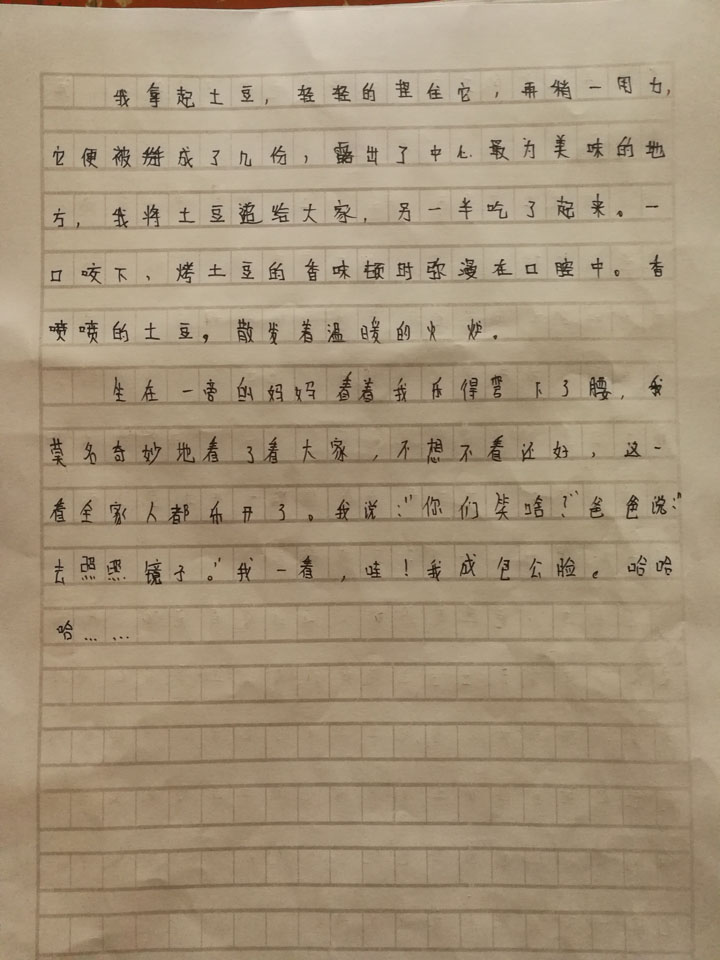 我拿起土豆，轻轻的捏住它，再稍一用力，
它便被掰成了几份，露出了中心最为美味的地
方，我将土豆递给大家，另一半吃了起来。一
口咬下、烤土豆的香味顿时弥漫在口腔中。香
喷喷的土豆。散发着温暖的火炉。
坐在一旁的妈妈看着我乐得弯下了腰，我
莫名奇妙地看了看大家，不想不看还好，这一
看全家人都乐开了。我说：“你们笑啥？”爸爸说：“
去照照镜子。”我一看，哇！我成包公脸。哈哈
哈……